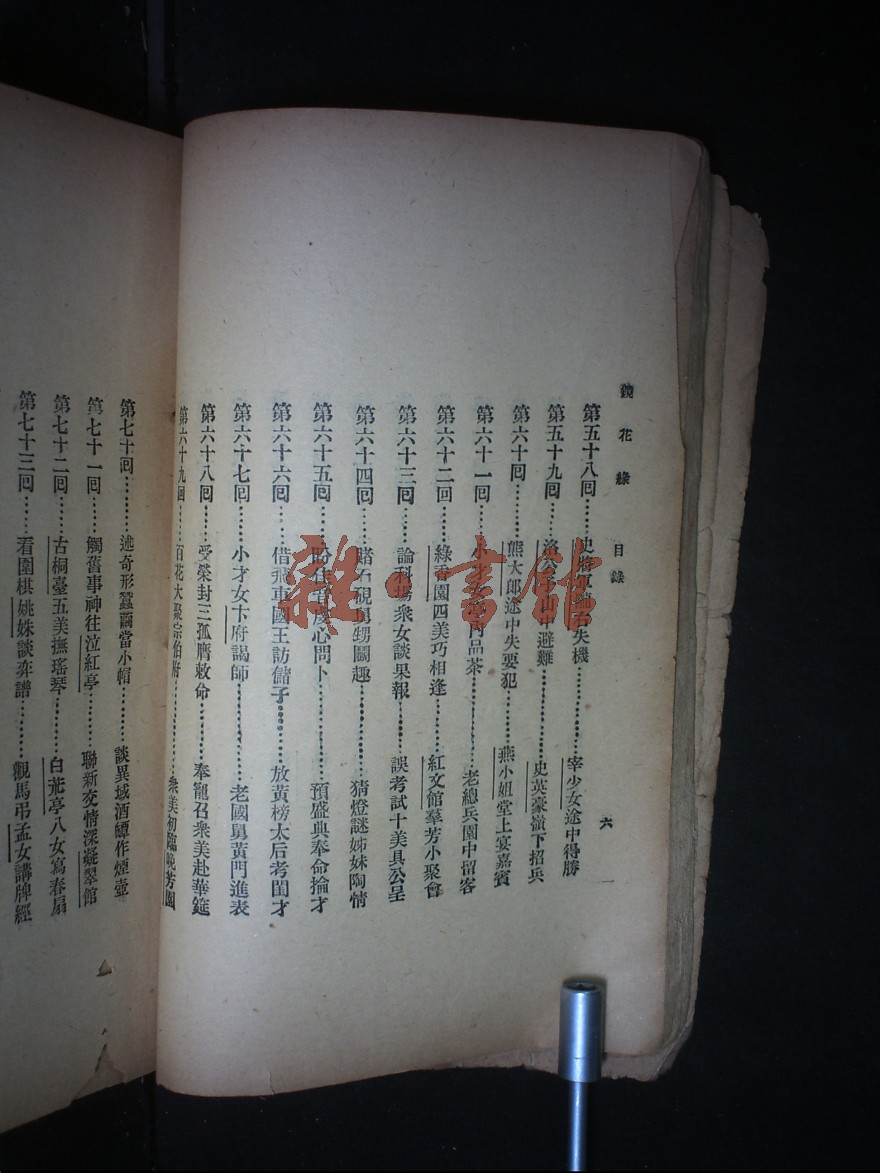 鏡花緣 目錄
六
第五十八回……史將軍隴右失機……宰少女途中得勝
第五十九回……洛公子山中避難……史英豪嶺下招兵
第六十回……熊大郎途中失要犯……燕小姐堂上宴嘉賓
第六十一回……小才女亭內品茶……老總兵園中留客
第六十二回……綠香園四美巧相逢……紅文館羣芳小聚會
第六十三回……論科場衆女談果報……誤考試十美具公呈
第六十四回……賭石硯舅甥鬭趣……猜燈謎姊妹陶情
第六十五回……盼佳音虔心問卜……預盛典奉命掄才
第六十六回……借飛車國王訪儲子……放黃榜太后考閨才
第六十七回……小才女卞府謁師……老國舅黃門進表
第六十八回……受榮封三孤膺敕命……奉寵召衆美赴華筵
第六十九回……百花大聚宗伯府……衆美初臨晚芳園
第七十回……述奇形蠶繭當小帽……談異域酒罈作煙壺
第七十一回……觸舊事神往泣紅亭……聯新交情深凝翠館
第七十二回……古桐臺五美撫瑤琴……白蒁亭八女寫春扇
第七十三回……看圍棋姚姝談弈譜……觀馬吊孟女講牌經
雜·書館